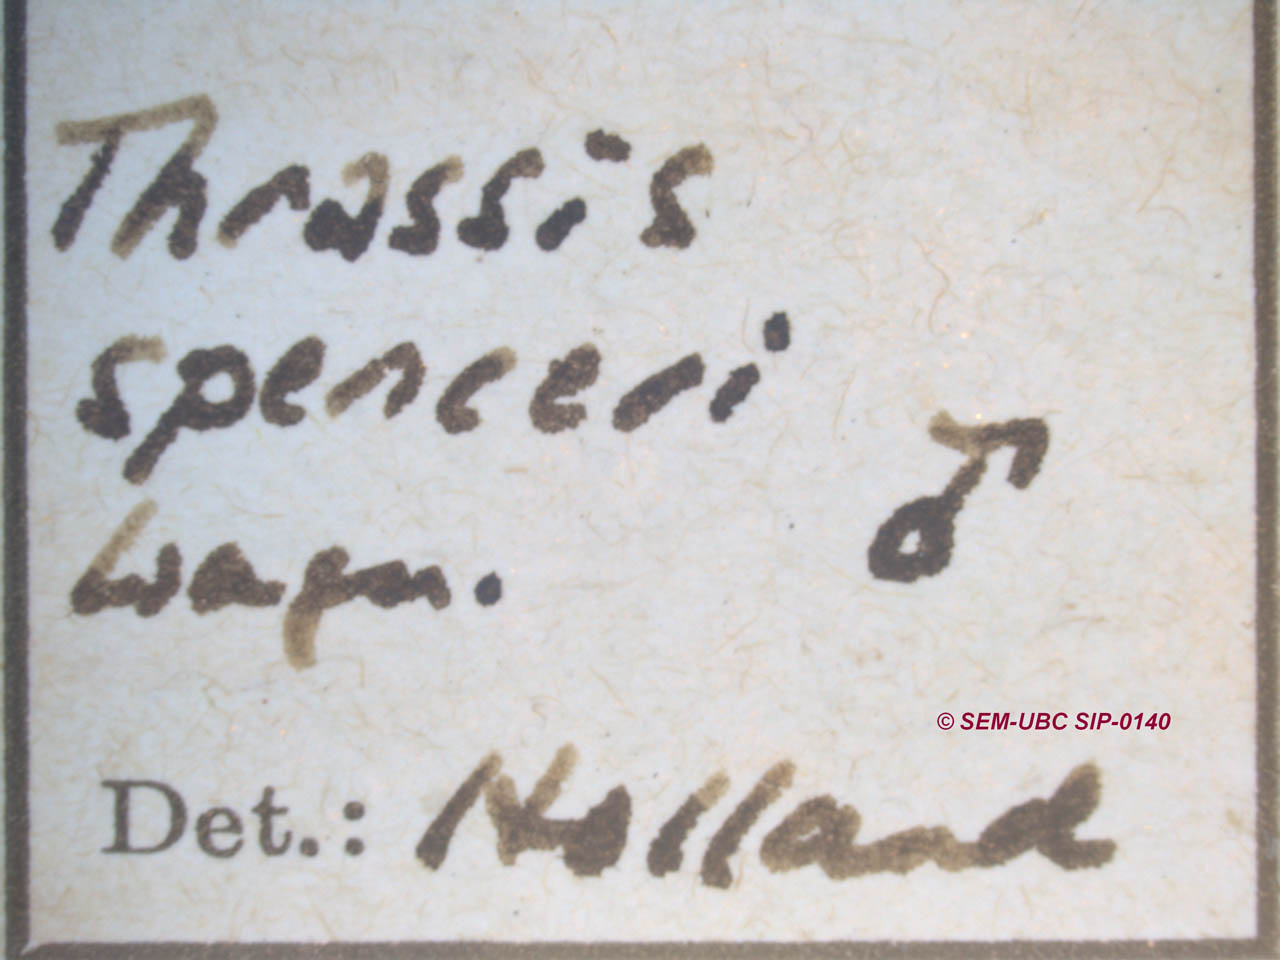 Thrassis
spenceri
Wagn.
♂
© SEM-UBC SIP-0140
Det.: Holland